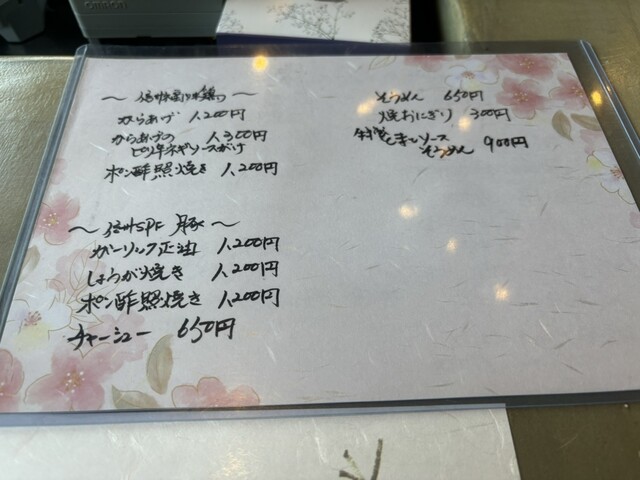 〜信州創味鶏〜
からあげ 1,200円
からあげの 1,300円
ピリ辛ネギソースがけ
ポン酢照焼き 1,200円
〜信州SPF 豚〜
ガーリック正油 1,200円
しょうが焼き 1,200円
ポン酢照焼き 1,200円
チャーシュー 650円
そうめん 650円
焼おにぎり 300円
とまとソース
そうめん 900円